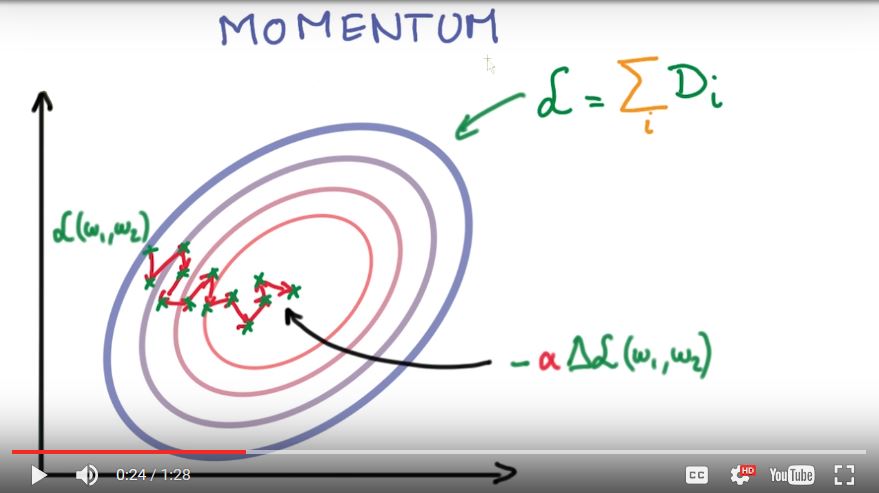 MOMENTUM
ℒ = Σ Dᵢ
i
ℒ(ω₁,ω₂)
- α Δℒ(ω₁,ω₂)
0:24 / 1:28
CC
HD
YouTube